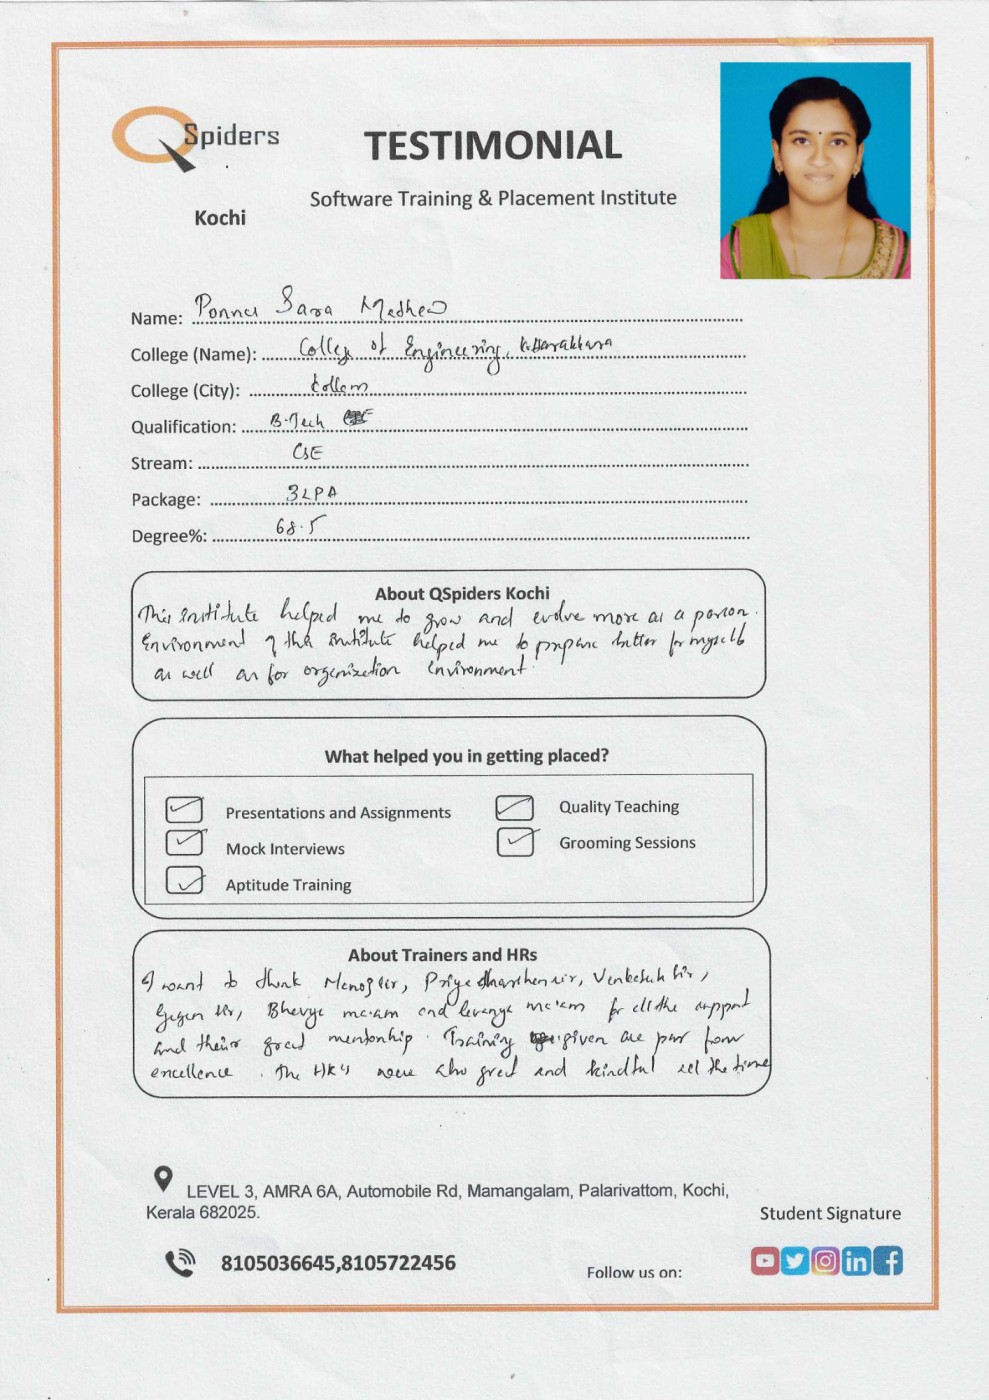 QSpiders
Kochi
TESTIMONIAL
Software Training & Placement Institute
Name: Ponnu Sara Mathew
College (Name): College of Engineering, Kottarakkara
College (City): Kollam
Qualification: B.Tech
Stream: CSE
Package: 3LPA
Degree%: 68.5
About QSpiders Kochi
This institute helped me to grow and evolve more as a person.
Environment of this institute helped me to prepare better for myself
as well as for organization environment.
What helped you in getting placed?
Presentations and Assignments
Quality Teaching
Mock Interviews
Grooming Sessions
Aptitude Training
About Trainers and HRs
I want to thank Manoj sir, Priyadharshan sir, Venkatesh sir,
Gagan sir, Bhavya ma'am and lavanya ma'am for all the support
and their great mentorship. Training given are par from
excellence. The HR's were also great and kindful all the time
LEVEL 3, AMRA 6A, Automobile Rd, Mamangalam, Palarivattom, Kochi,
Kerala 682025.
Student Signature
8105036645,8105722456
Follow us on: